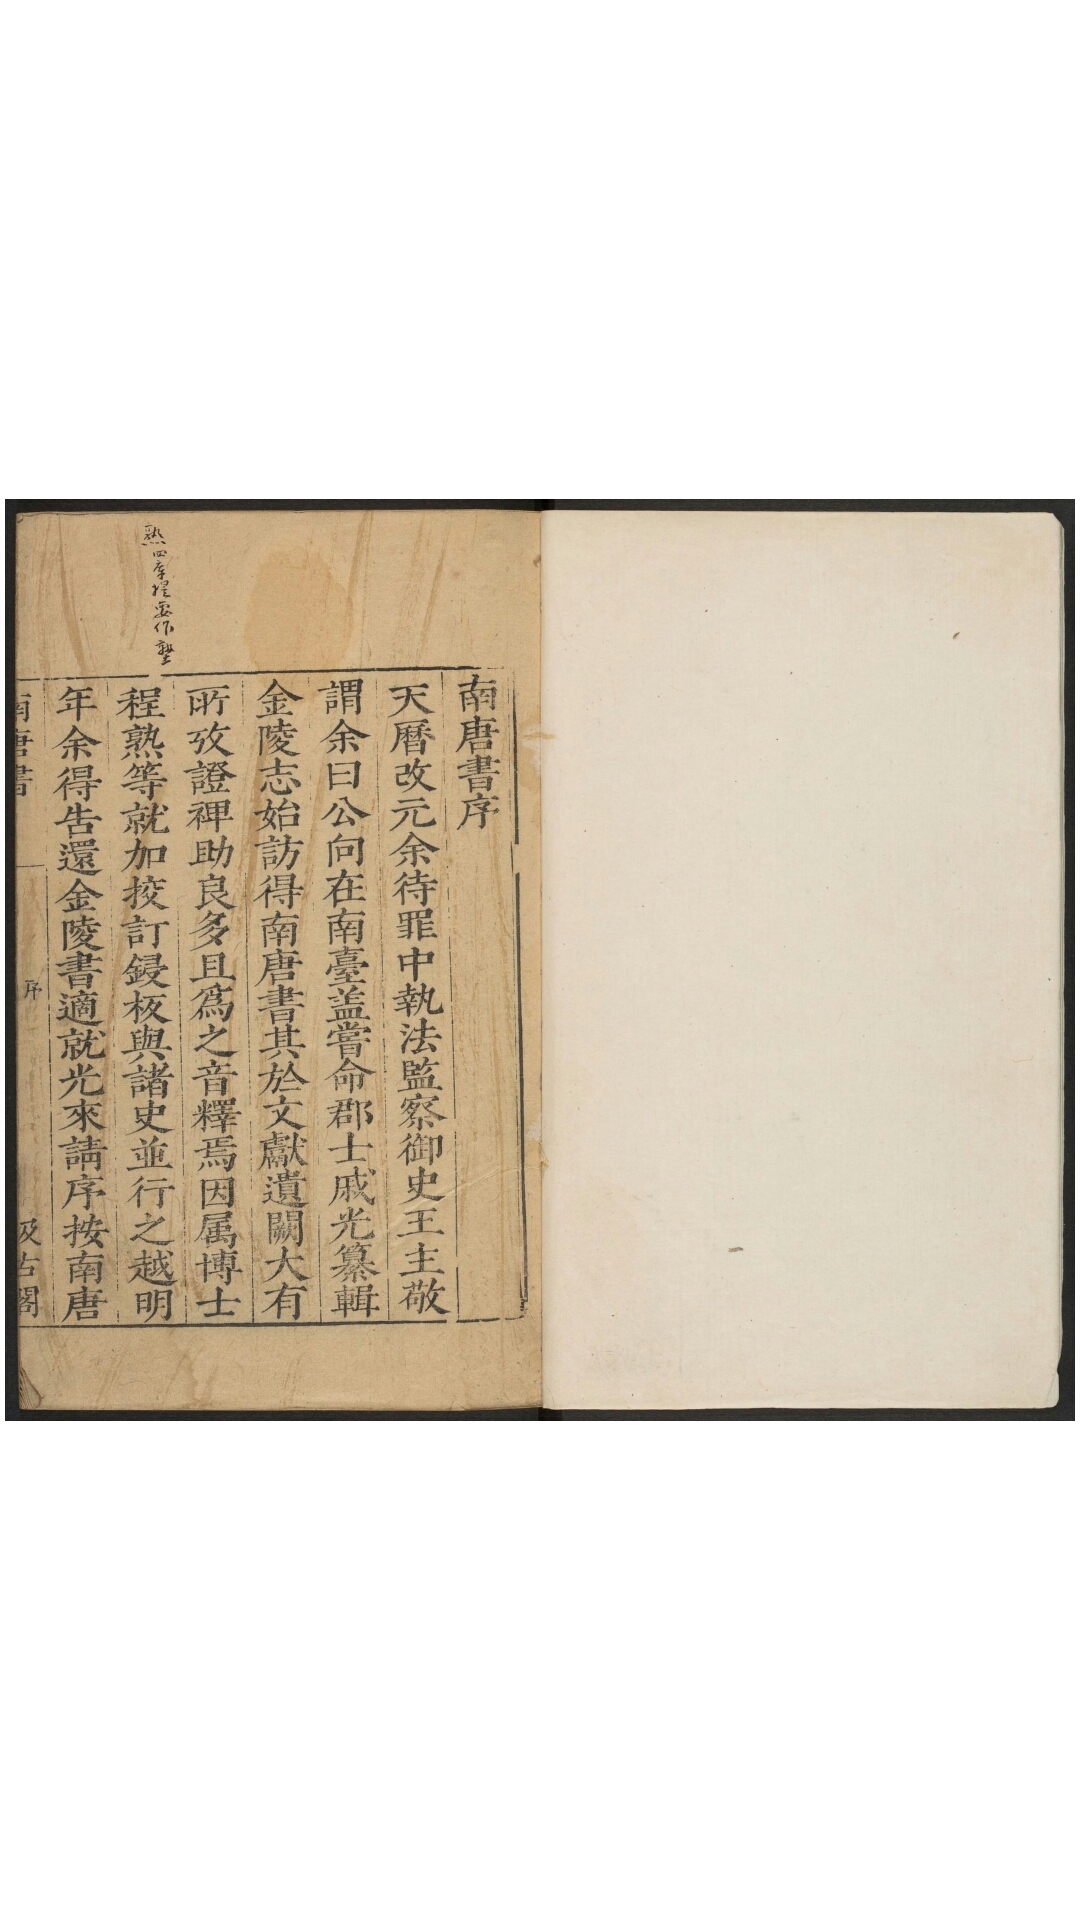 南唐書序
天曆改元余待罪中執法監察御史王主敬
謂余曰公向在南臺盖嘗命郡士戚光纂輯
金陵志始訪得南唐書其於文獻遺闕大有
所攷證裨助良多且爲之音釋焉因属博士
程熟等就加挍訂鋟板與諸史並行之越明
年余得告還金陵書適就光來請序按南唐
熟四庫提要作塾
南唐書
序
汲古閣